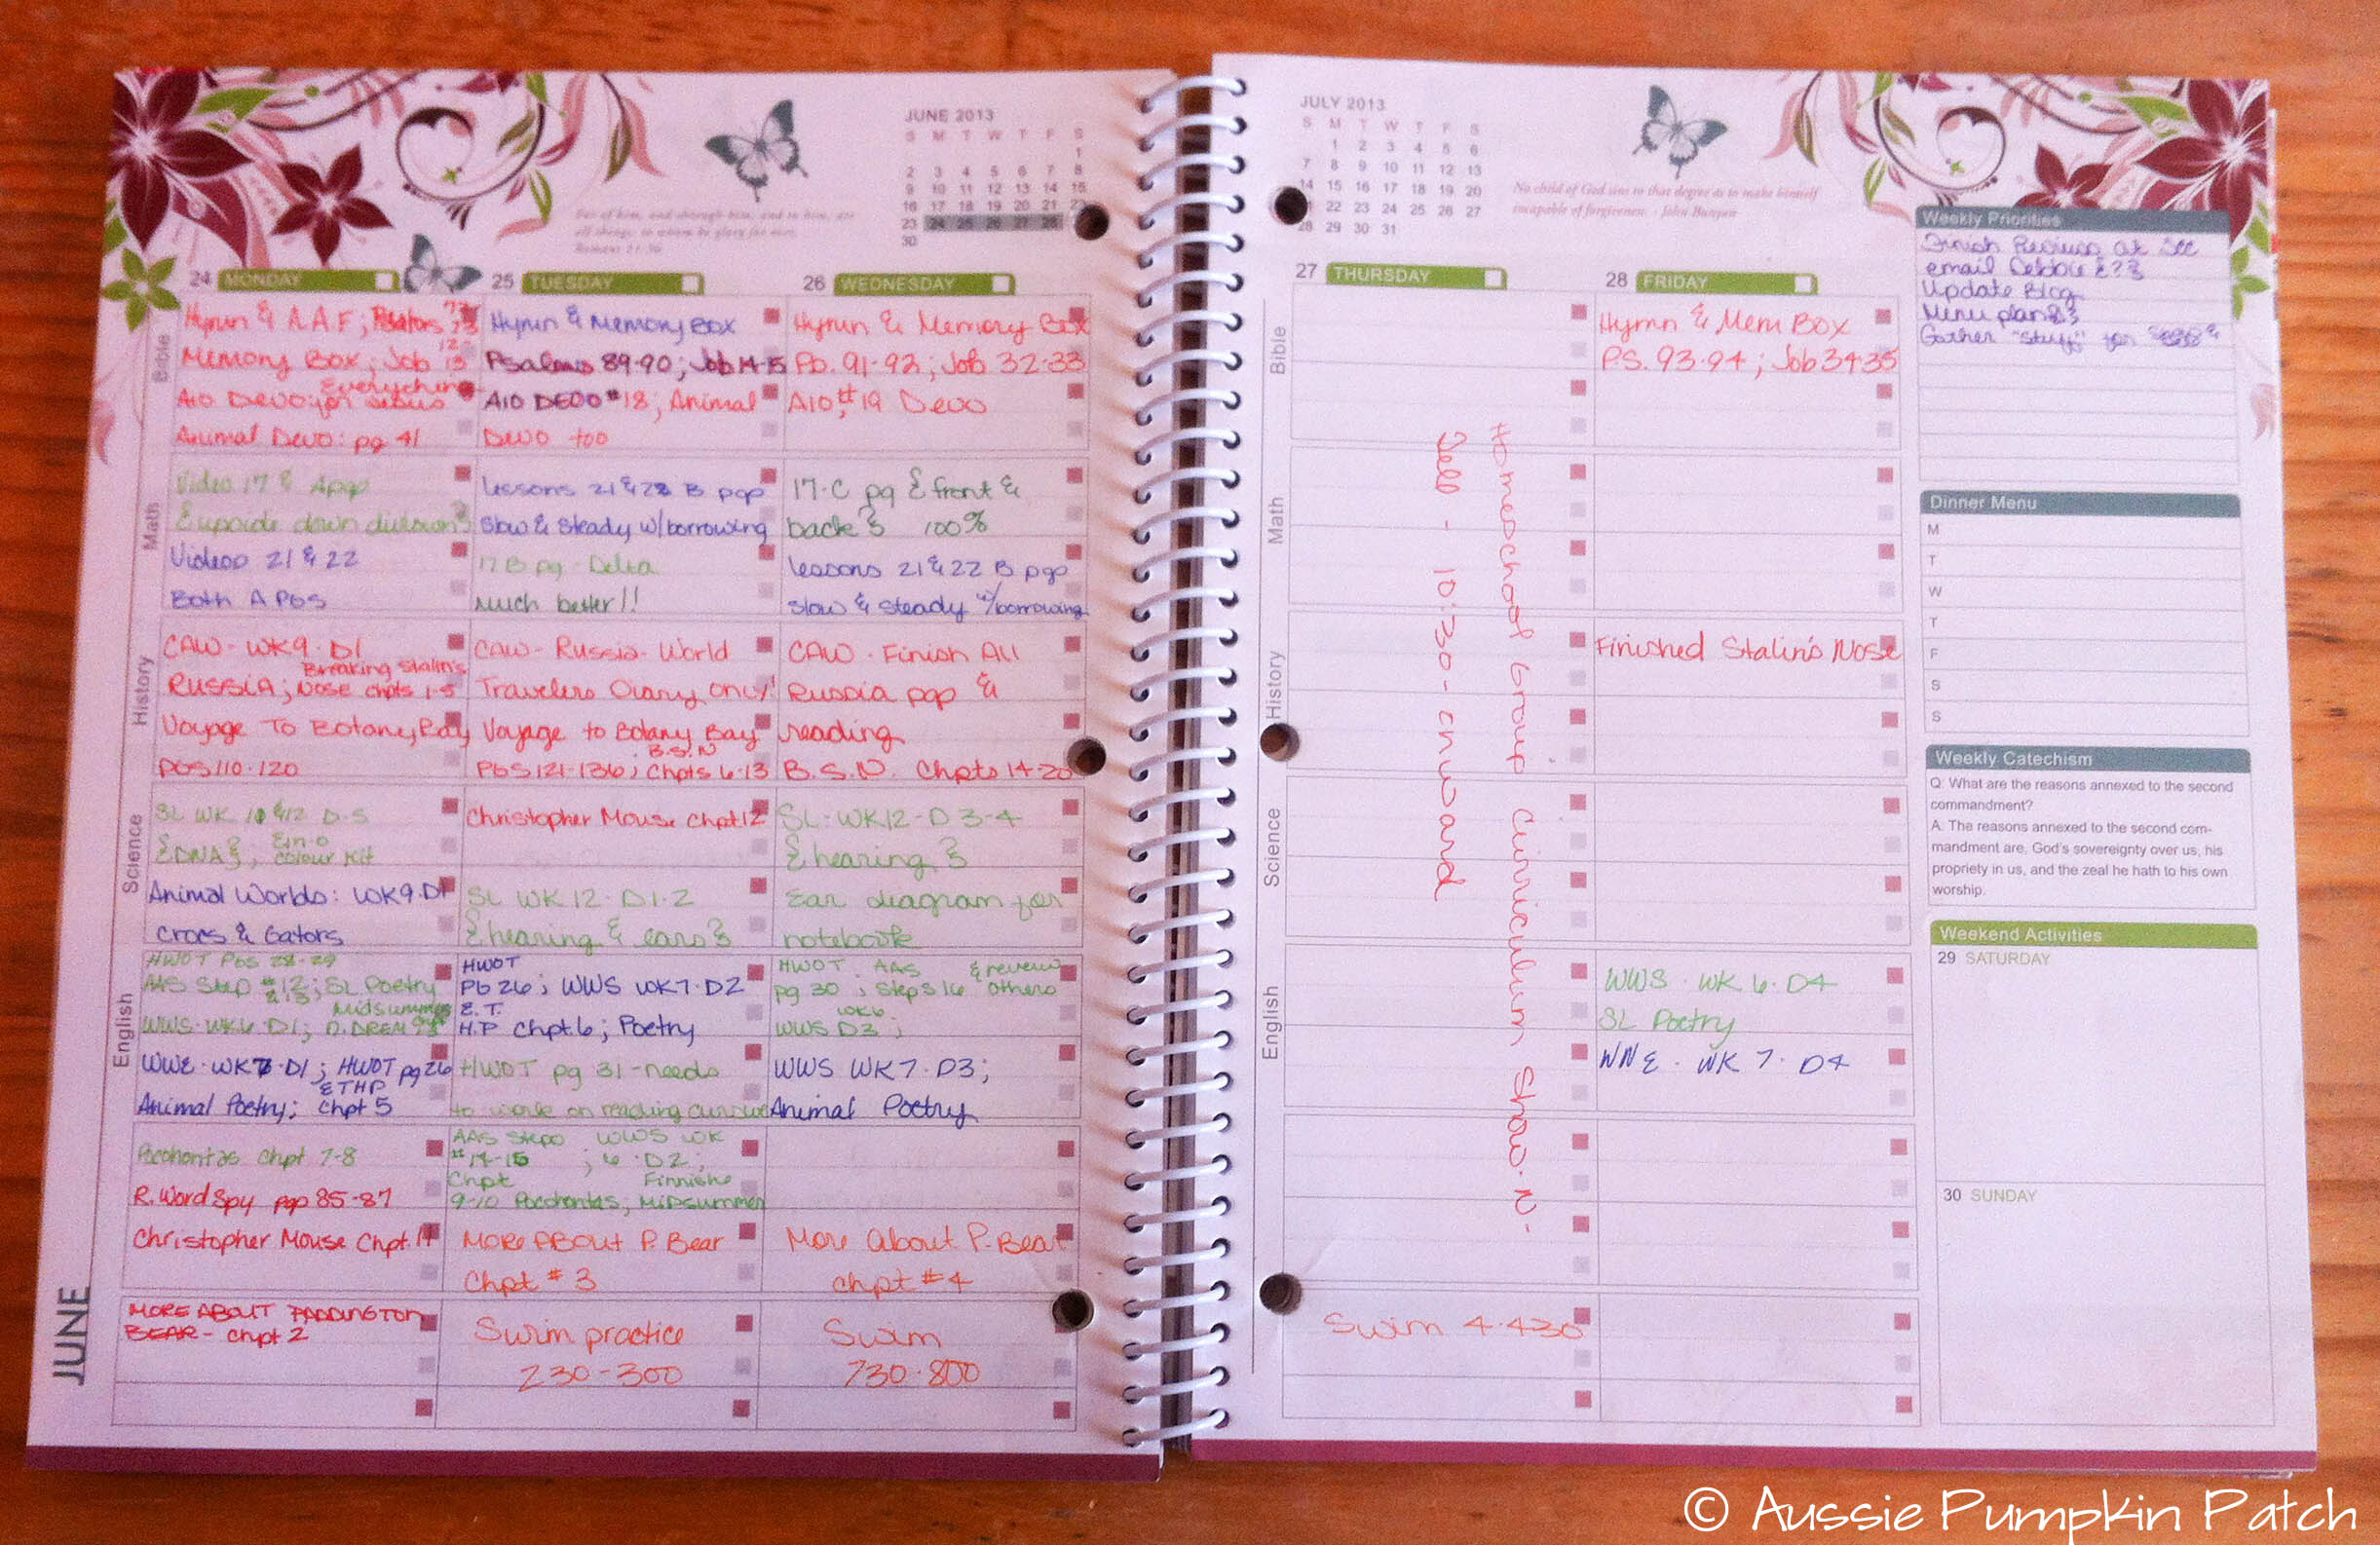 JUNE 2013
S M T W T F S
1
2 3 4 5 6 7 8
9 10 11 12 13 14 15
16 17 18 19 20 21 22
23 24 25 26 27 28
30
24 MONDAY
25 TUESDAY
26 WEDNESDAY
Bible
Hymn & A.A.F; Psalms
Memory Box; Job
Everything
A10 Devo: for Jesus
Animal Devo: pg 41
Hymn & Memory Box
Psalms 89-90; Job 14-15
A10 DEVO #18; Animal
Devo too
Hymn & Memory Box
Ps. 91-92; Job 32-33
A10 #19 Devo
Math
Video 17 & A pgp
{upside down division}
Videos 21 & 22
Both A PGS
Lessons 21 & 22 B pgp
Slow & Steady w/borrowing
17 B pg - Delta
much better!!
17-C pg {front &
back} 100%
Lessons 21 & 22 B pgs
slow & steady w/borrowing
History
CAW - WK9 - D1
Breaking Stalin's
RUSSIA; Nose chpts 1-5
Voyage To Botany Bay
PGS 110-120
CAW - Russia - World
Travelers Diary only!
Voyage to Botany Bay
B.S.N
PGS 121-136; Chpts 6-13
CAW - Finish All
Russia pgp &
reading
B.S.N. Chpts 14-20
Science
SL WK 12 D-5
{DNA};
colour kit
Animal Worlds: WK9-D1
Crocs & Gators
Christopher Mouse Chpt 12
SL WK 12 - D1-2
{hearing & ears}
SL - WK12 - D 3-4
{hearing}
Ear diagram for
notebook
English
HWOT PGS 28-29
AAS Step #12; SL Poetry
Midsummer
WWS - WK6 - D1; N. DREAM
WWE - WK7 - D1; HWOT pg 26
ETHP
Animal Poetry; Chpt 5
HWOT
PG 26; WWS WK7 - D2
E.T.
H.P Chpt. 6; Poetry
HWOT pg 31 - needs
to work on reading cursive
HWOT AAS & review
pg 30; Steps 16 others
WK6
WWS D3;
WWS WK7 - D3;
Animal Poetry
Pocohontas Chpt 7-8
R. Word Spy pgp 85-87
Christopher Mouse Chpt. 11
AAS Steps; WWS WK
#14-15; 6 - D2;
Chpt Finnish
9-10 Pocohontas, Midsummer
MORE ABOUT P. Bear
Chpt #3
More About P. Bear
chpt #4
MORE ABOUT PADDINGTON
BEAR - Chpt 2
Swim practice
230-300
Swim
730-800
JUNE
JULY 2013
S M T W T F S
1 2 3 4 5 6
7 8 9 10 11 12 13
14 15 16 17 18 19 20
22 23 24 25 26 27
28 29 30 31
No child of God sins to that degree as to make himself
incapable of forgiveness. - John Bunyan
27 THURSDAY
28 FRIDAY
Bible
Math
History
Science
English
Homeschool Group Curriculum Show-N-
Tell - 10:30 - onward
Swim 4-430
Hymn & Mem Box
PS. 93-94; Job 34-35
Finished Stalin's Nose
WWS - WK 6 - D4
SL Poetry
WWE - WK 7 - D4
Weekly Priorities
email Debbie {??}
Update Blog
Menu plan
Gather "stuff" for
Dinner Menu
M
T
W
T
F
S
S
Weekly Catechism
Q. What are the reasons annexed to the second
commandment?
A. The reasons annexed to the second com-
mandment are, God's sovereignty over us, his
propriety in us, and the zeal he hath to his own
worship.
Weekend Activities
29 SATURDAY
30 SUNDAY
© Aussie Pumpkin Patch